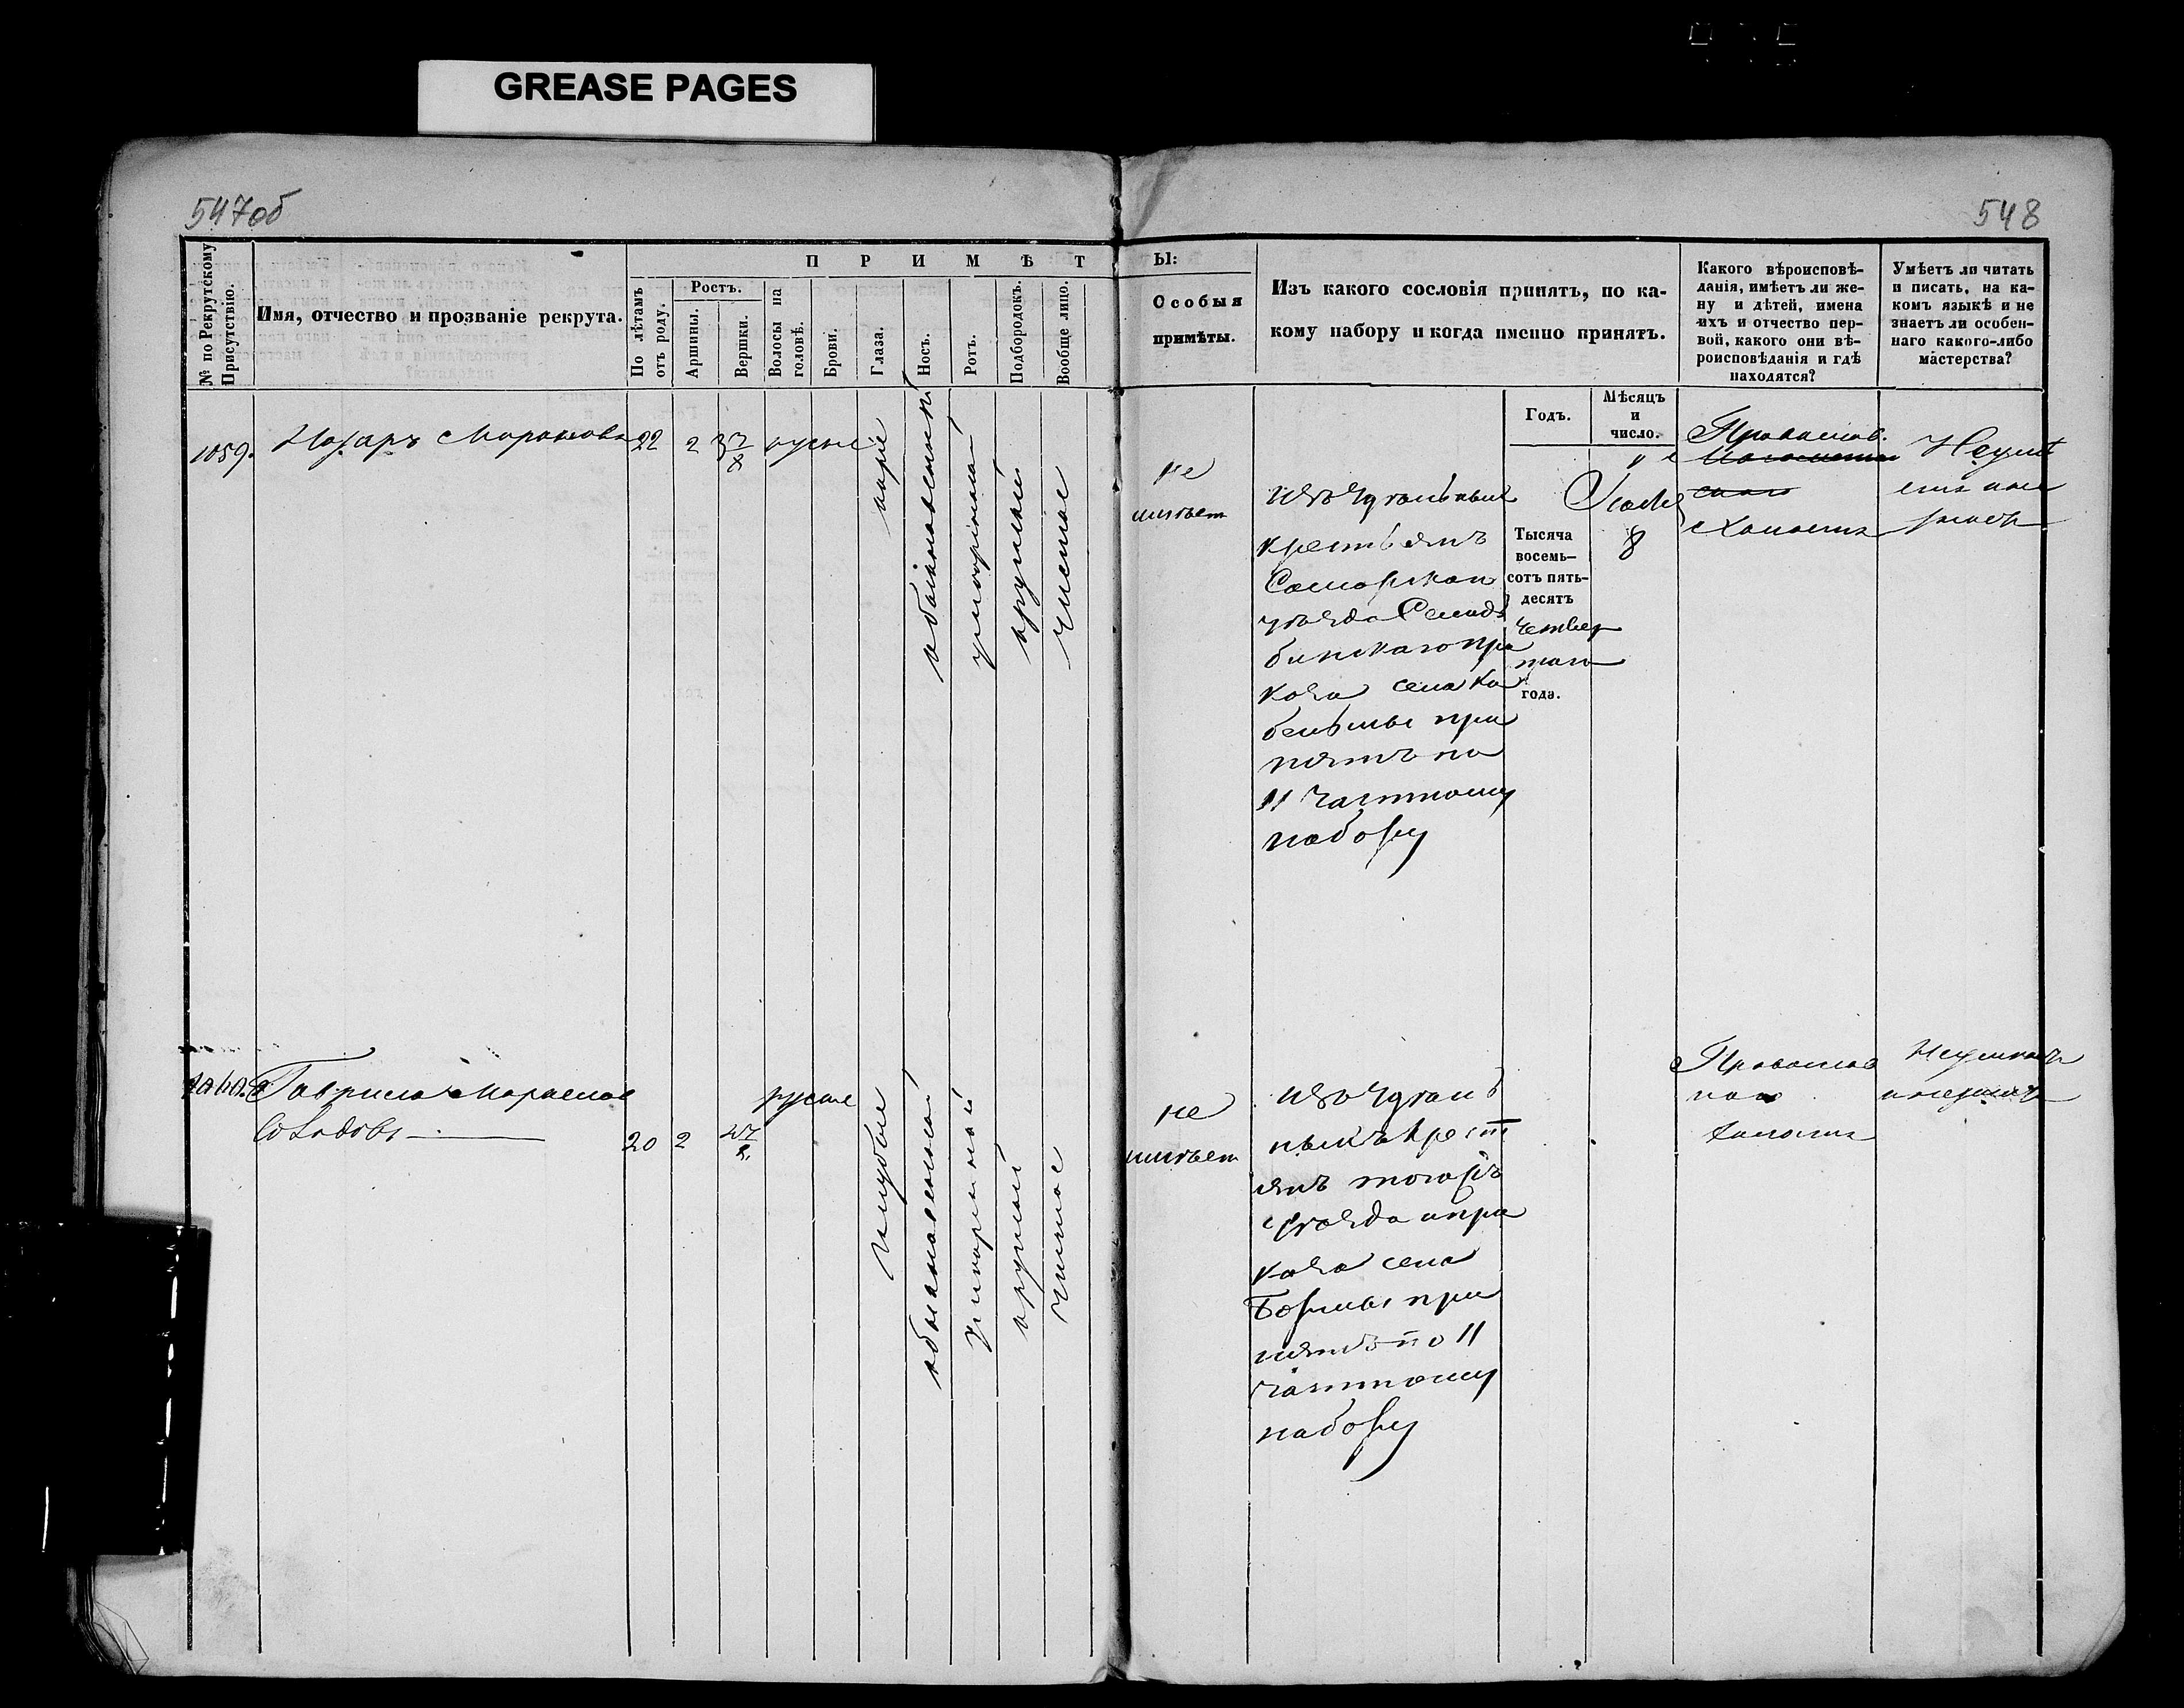 GREASE PAGES
547об
548
№ по Рекрутскому Присутствію.
Имя, отчество и прозваніе рекрута.
ПРИМѢТ
По лѣтамъ отъ роду.
Ростъ.
Аршины.
Вершки.
Волосы на головѣ.
Брови.
Глаза.
Носъ.
Ротъ.
Подбородокъ.
Вообще лицо.
Ы:
Особыя
примѣты.
Изъ какого сословія принятъ, по ка-
кому набору и когда именно принятъ.
Какого вѣроисповѣ-
данія, имѣетъ ли же-
ну и дѣтей, имена
ихъ и отчество пер-
вой, какого они вѣ-
роисповѣданія и гдѣ
находятся?
Умѣетъ ли читать
и писать, на ка-
комъ языкѣ и не
знаетъ ли особен-
наго какого-либо
мастерства?
Годъ.
Мѣсяцъ
и
число.
1059.
Назаръ
22
2
3 7/8
русые
карие
обыкновенный
умѣренный
круглый
чистое
не
имѣет
изъ Удѣльныхъ
крестьянъ
Самарскаго
уѣзда
каза села Ка
бельмы при
нятъ по
11 частному
набору
Тысяча
восемь-
сотъ пять-
десятъ
четвер
таго
года.
8
Православ.
Холостъ
Неумѣ
етъ
1060.
Гаврило
20
2
русые
голубые
обыкновенный
умѣренный
круглый
чистое
не
имѣет
изъ Удѣль
ныхъ крест
янъ тогожъ
уѣзда ипри
каза села
Бормы при
нятъ по 11
частному
набору
Православ
наго
холостъ